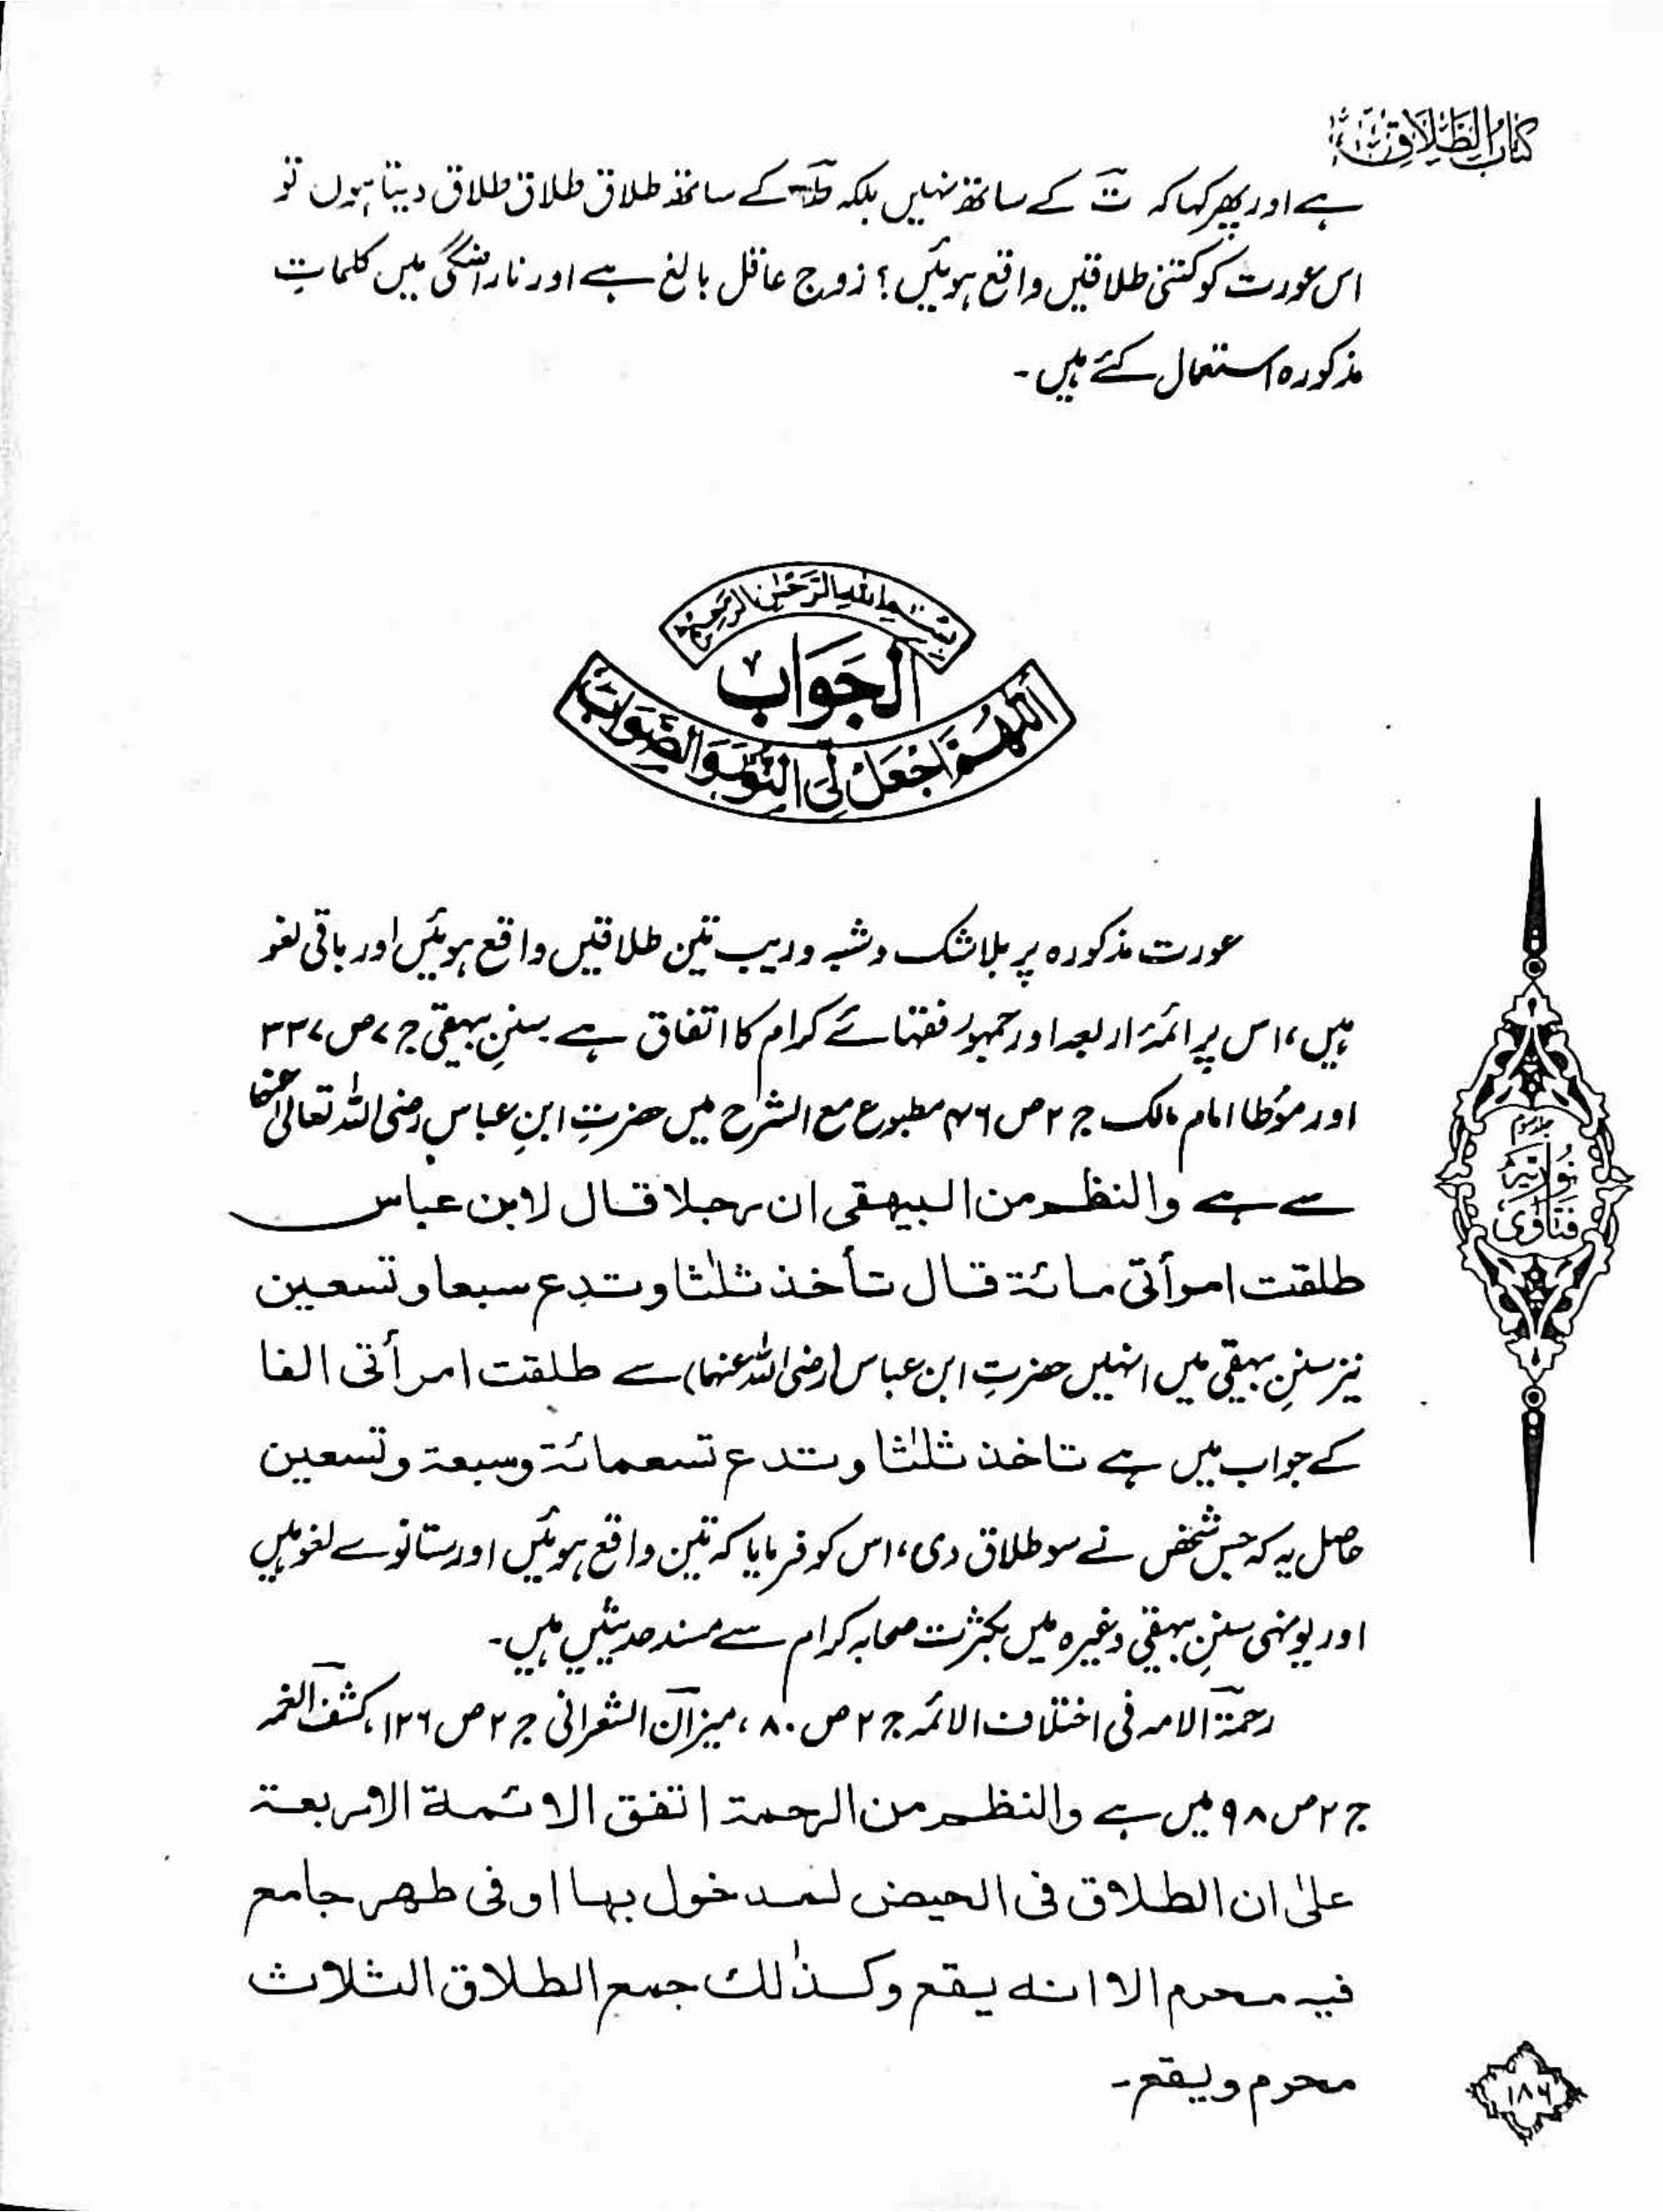 کتاب الطلاق
ہے اور پھر کہا کہ ت کے ساتھ نہیں بلکہ ط کے ساتھ طلاق طلاق طلاق دیتا ہوں تو
اس عورت کو کتنی طلاقیں واقع ہوئیں؟ زوج عاقل بالغ ہے اور ناراضگی میں کلماتِ
مذکورہ استعمال کئے ہیں۔
بسم الله الرحمن الرحیم
الجَوَابُ
اللهم اجعل لی النور والصواب
عورت مذکورہ پر بلاشک و شبہ و ریب تین طلاقیں واقع ہوئیں اور باقی لغو
ہیں، اس پر ائمہ اربعہ اور جمہور فقہائے کرام کا اتفاق ہے سننِ بیہقی ج ۷ ص ۳۳۷
اور مؤطا امام مالک ج ۲ ص ۴۶ مطبوع مع الشرح میں حضرتِ ابنِ عباس رضی اللہ تعالیٰ عنہما
سے ہے والنظم من البیهقی ان رجلا قال لابن عباس
طلقت امرأتی مائة قال تأخذ ثلٰثا وتدع سبعا وتسعین
نیز سننِ بیہقی میں انہیں حضرتِ ابن عباس (رضی اللہ عنہما) سے طلقت امرأتی الفا
کے جواب میں ہے تاخذ ثلٰثا وتدع تسعمائة وسبعة وتسعین
حاصل یہ کہ جس شخص نے سو طلاق دی، اس کو فرمایا کہ تین واقع ہوئیں اور ستانوے لغو ہیں
اور یونہی سننِ بیہقی وغیرہ میں بکثرت صحابہ کرام سے مسند حدیثیں ہیں۔
رحمۃ الامہ فی اختلاف الائمہ ج ۲ ص ۸۰، میزان الشعرانی ج ۲ ص ۱۲۶، کشف الغمہ
ج ۲ ص ۹۸ میں ہے والنظم من الرحمة اتفق الائمة الاربعة
علیٰ ان الطلاق فی الحیض لمدخول بها او فی طهر جامع
فیه محرم الا انه یقع وکذٰلك جمع الطلاق الثلاث
محرم ویقع۔
جلد سوم
فتاوٰی نوریہ
۱۸۶